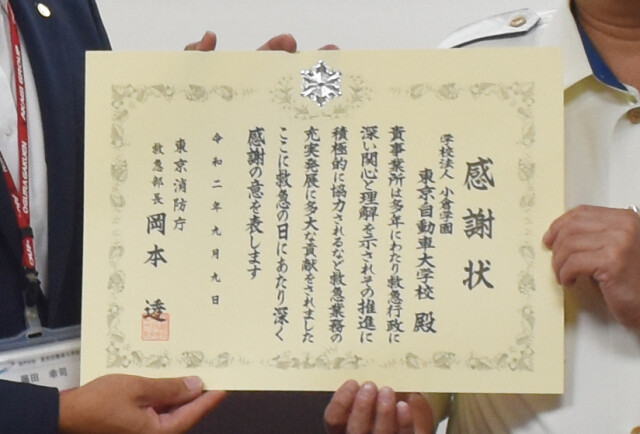 感謝状
学校法人 小倉学園
東京自動車大学校 殿
貴事業所は多年にわたり救急行政に
深い関心と理解を示されその推進に
積極的に協力されるなど救急業務の
充実発展に多大な貢献をされました
ここに救急の日にあたり深く
感謝の意を表します
令和二年九月九日
東京消防庁
救急部長 岡本 透
AKABI GROUP
OGURA GAKUEN
幸司